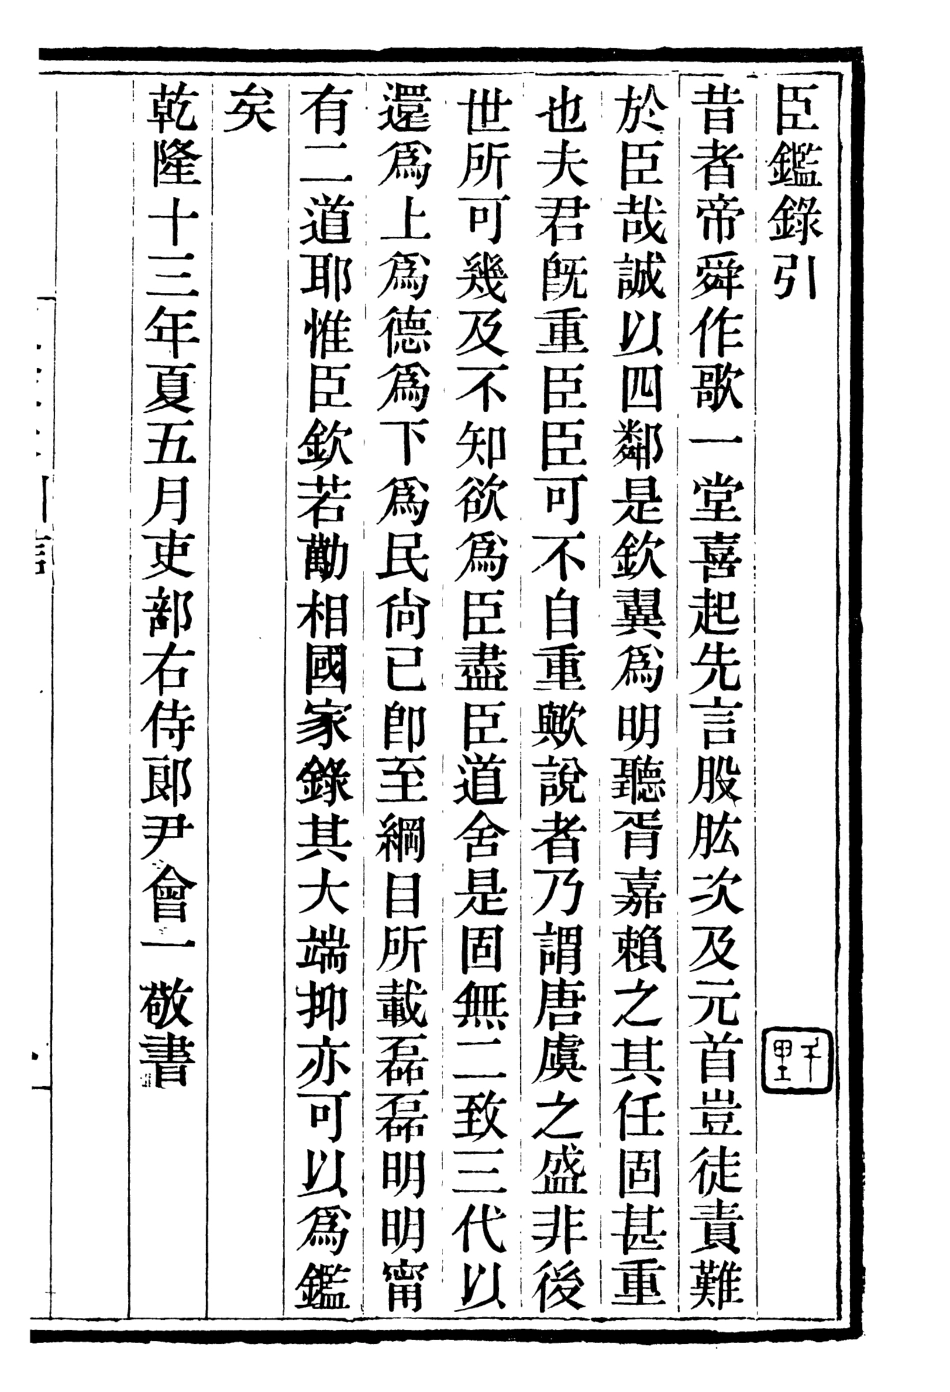 臣鑑錄引
昔者帝舜作歌一堂喜起先言股肱次及元首豈徒責難
於臣哉誠以四鄰是欽翼爲明聽胥嘉賴之其任固甚重
也夫君旣重臣臣可不自重歟說者乃謂唐虞之盛非後
世所可幾及不知欲爲臣盡臣道舍是固無二致三代以
還爲上爲德爲下爲民尙已卽至綱目所載磊磊明明甯
有二道耶惟臣欽若勵相國家錄其大端抑亦可以爲鑑
矣
乾隆十三年夏五月吏部右侍郎尹會一敬書